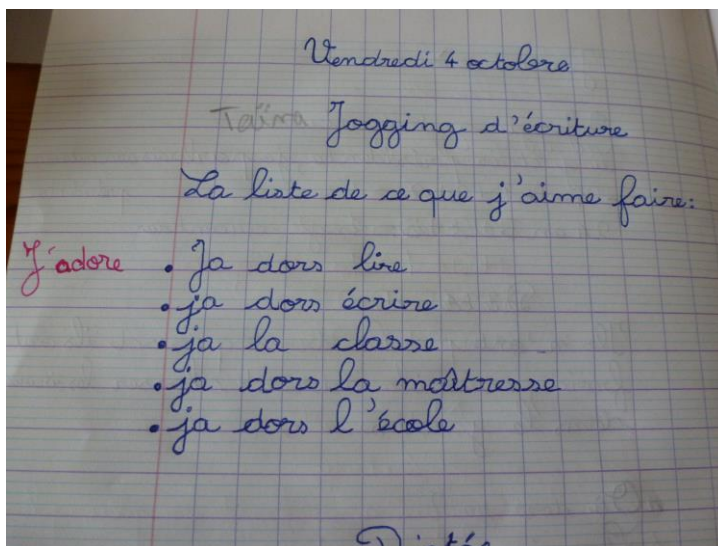 Vendredi 4 octobre
Taïma Jogging d'écriture
La liste de ce que j'aime faire:
J'adore • Ja dors lire
• ja dors écrire
• ja la classe
• ja dors la maîtresse
• ja dors l'école